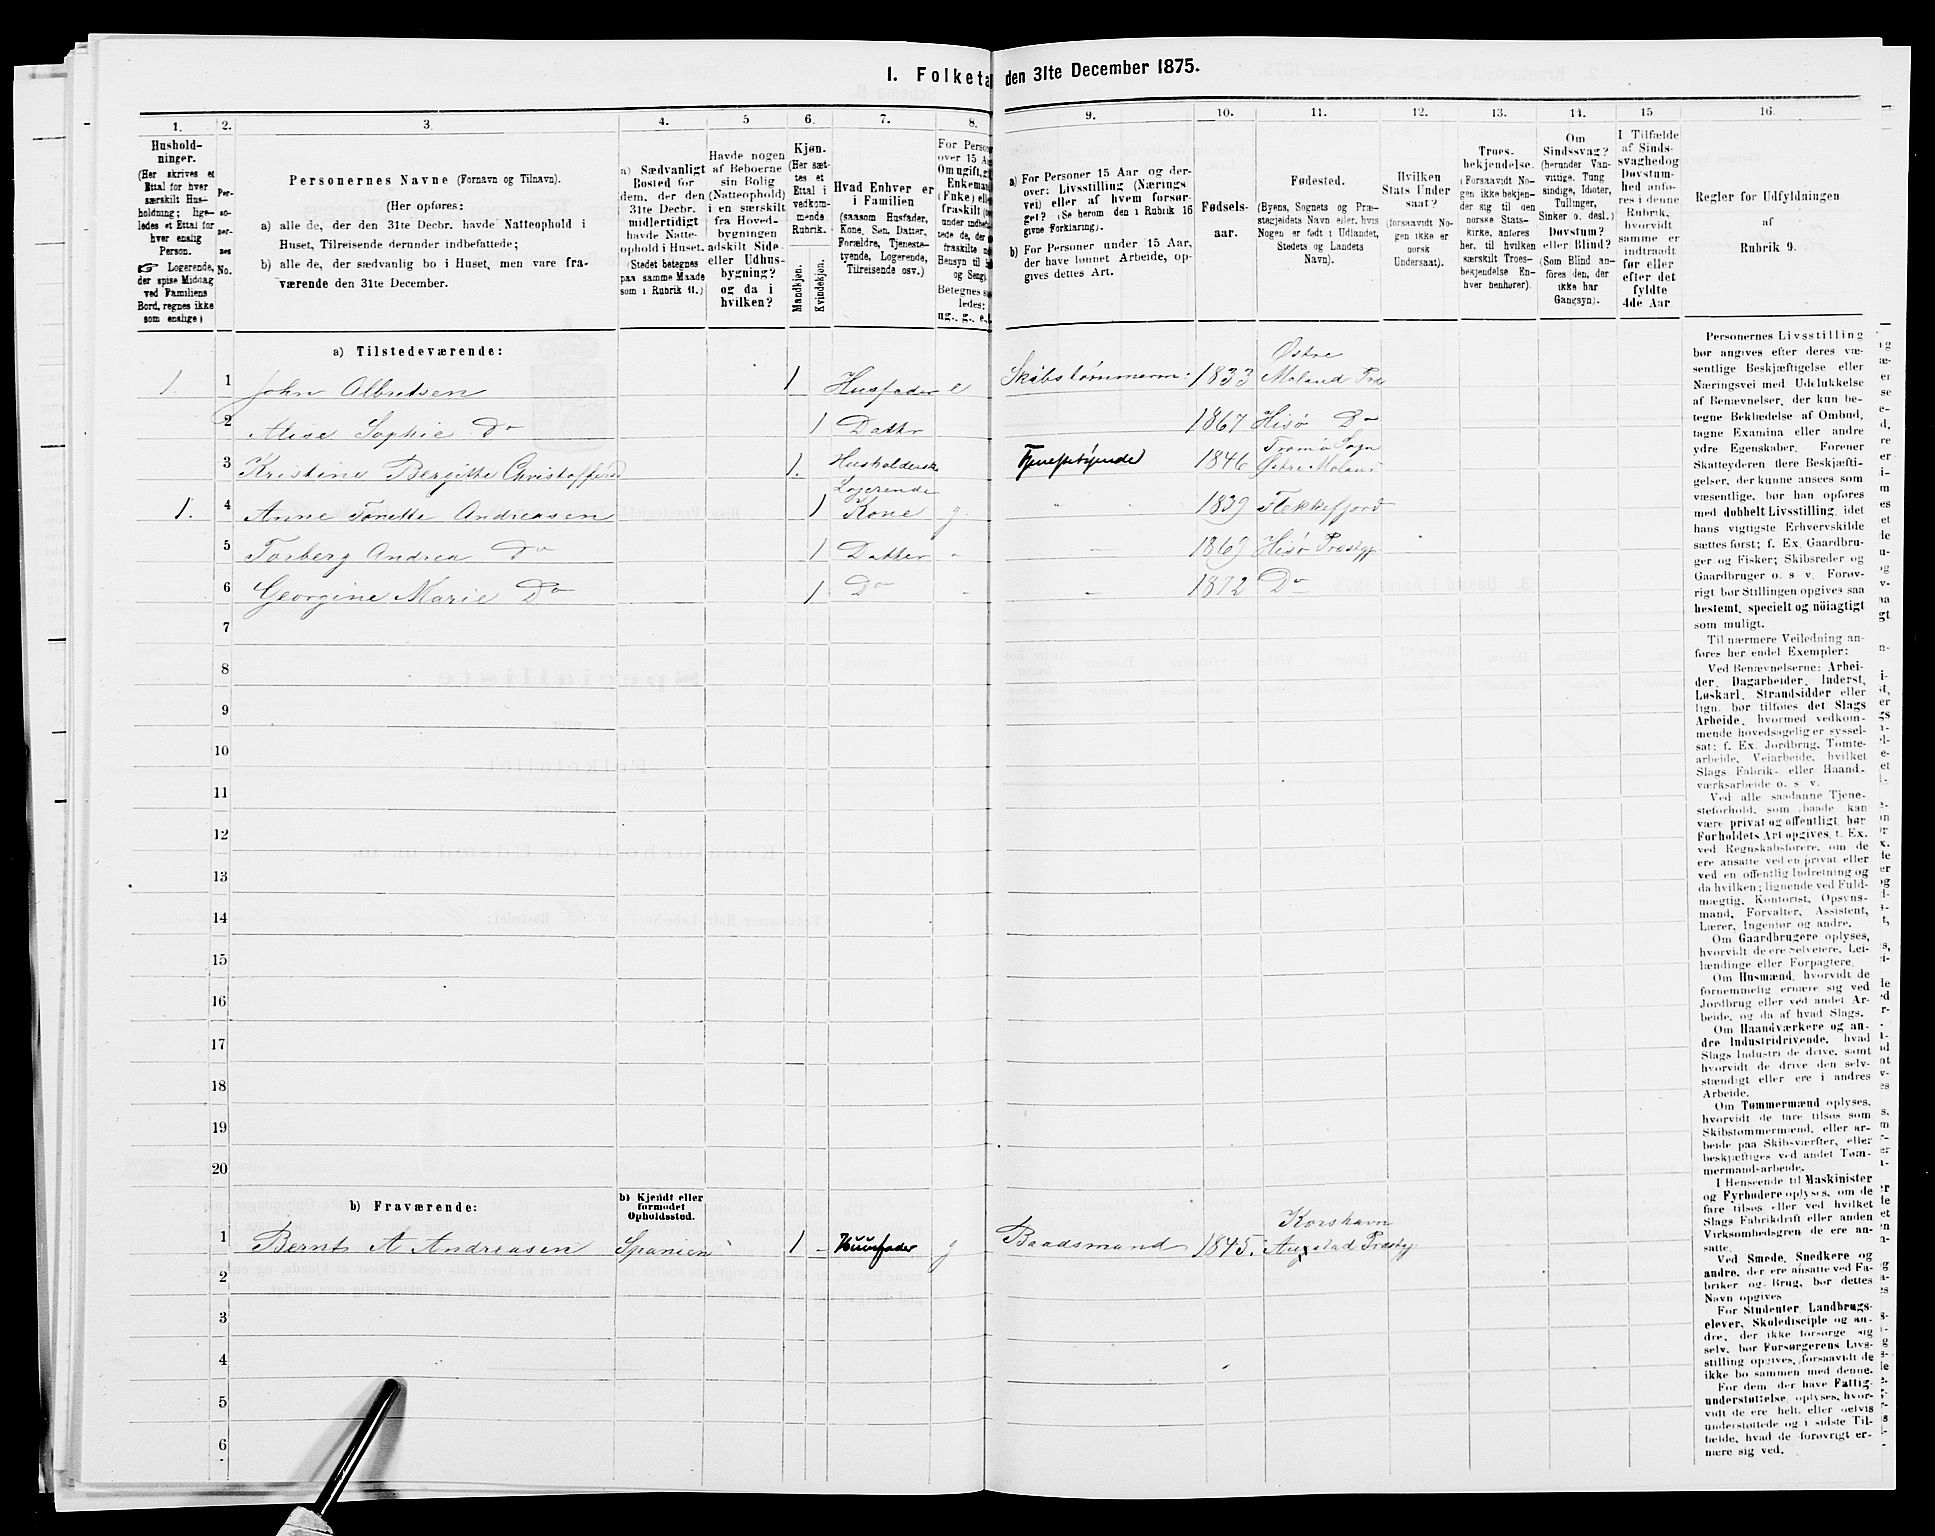 I. Folketa den 31te December 1875.
1. 2. 3. 4. 5 6. 7. 8. 9. 10. 11. 12. 13. 14. 15 16.
Hushold-
ninger.
(Her skrives et
Ettal for hver
særskilt Hus-
holdning; lige-
ledes et Ettal for
hver enslig
Person.
☞ Logerende,
der spise Middag
ved Familiens
Bord, regnes ikke
som enslige)
Per-
so-
ner-
nes
No.
Personernes Navne (Fornavn og Tilnavn).
(Her opføres:
a) alle de, der den 31te Decbr. havde Natteophold i
Huset, Tilreisende derunder indbefattede;
b) alle de, der sædvanlig bo i Huset, men vare fra-
værende den 31te December.
a) Sædvanligt
Bosted for
dem, der den
31te Decbr.
midlertidigt
havde Natte-
ophold i Huset.
(Stedet betegnes
paa samme Maade
som i Rubrik 11.)
Havde nogen
af Beboerne
sin Bolig
(Natteophold)
i en særskilt
fra Hoved-
bygningen
adskilt Side-
eller Udhus-
bygning?
og da i
hvilken?
Kjøn.
(Her sæt-
tes et
Ettal i
vedkom-
mende
Rubrik.
Mandkjøn.
Kvindekjøn.
Hvad Enhver er
i Familien
(saasom Husfader,
Kone, Søn, Datter,
Forældre, Tjeneste-
tyende, Logerende
eller
Tilreisende osv.)
For Perso
over 15 A
Om ugift, gi
Enkeman
(Enke) elle
fraskilt (o
under indbef
tede de, der
fraskilte
Hensyn til
og Seng)
Betegnes s
ledes:
ug., g., e.,
a) For Personer 15 Aar og der-
over: Livsstilling (Nærings
vei) eller af hvem forsør-
get? (Se herom den i Rubrik 16
givne Forklaring).
b) For Personer under 15 Aar,
der have lønnet Arbeide, op-
gives dettes Art.
Fødsels-
aar.
Fødested.
(Byens, Sognets og Præ-
stegjeldets Navn eller, hvis
Nogen er født i Udlandet,
Stedets og Landets
Navn).
Hvilken
Stats Under
saat?
(forsaavidt No-
gen ikke er
norsk
Undersaat).
Troes-
bekjendelse.
(Forsaavidt No-
gen ikke bekjen-
der sig til den
norske Stats-
kirke, anføres
her, til hvilken
særskilt Troes-
bekjendelse En-
hver henhører).
Om
Sindssvag?
(herunder Van-
vittige, Tung
sindige, Idioter,
Tullinger,
Sinker o. desl.)
Døvstum?
eller Blind?
(Som Blind an-
føres den, der
ikke har
Gangsyn).
I Tilfælde
af Sinds-
svaghed og
Døvstum-
hed anfø-
res i denne
Rubrik,
hvorvidt
samme er
indtraadt
før eller
efter det
fyldte
4de Aar.
Regler for Udfyldningen
af
Rubrik 9.
a) Tilstedeværende:
1. 1 John Albretsen 1 Husfader e Skibstømmerm: 1833 Østre Moland Præ
2 Alise Sophie Do 1 Datter 1867 Hisø Do
3 Kristine Bergitte Christoffersd 1. Husholdersk Tjenestetyende 1846 Tromø Sogn Østre Moland
1. 4 Anne Tonette Andreasen 1 Logerende Kone g " 1839 Flekkefjord
5 Torberg Andrea Do 1 Datter " " 1869 Hisø Præstgj
6 Georgine Marie Do 1 Do " " 1872 Do
7
8
9
10
11
12
13
14
15
16
17
18
19
20
b) Fraværende:
b) Kjendt eller
formodet
Opholdssted.
1 Bernt A Andreasen Spanien 1 Huusfader g Baadsmand 1845. Korshavn Præstgj
2
3
4
5
6
Personernes Livsstilling
bør angives efter deres væ-
sentlige Beskjæftigelse eller
Næringsvei med Udelukkelse
af Benævnelser, der kun be-
tegne Beklædelse af Ombud,
tagne Examina eller andre
ydre Egenskaber. Forener
Skatteyderen flere Beskjæfti-
gelser, der kunne ansees som
væsentlige, bør han opføres
med dobbelt Livsstilling, idet
hans vigtigste Erhvervskilde
sættes først; f. Ex. Gaardbru-
ger og Fisker; Skibsreder og
Gaardbruger o. s v. Forøv-
rigt bør Stillingen opgives saa
bestemt, specielt og nöiagtigt
som muligt.
Til nærmere Veiledning an-
føres her endel Exempler:
Ved Benævnelserne: Arbei-
der, Dagarbeider, Inderst,
Løskarl, Strandsidder eller
lign. bør tilføies det Slags
Arbeide, hvormed vedkom-
mende hovedsagelig er syssel-
sat; f. Ex. Jordbrug, Tomte-
arbeide, Veiarbeide, hvilket
Slags Fabrik- eller Haand-
værksarbeide o. s. v.
Ved alle saadanne Tjene-
steforhold, som baade kan
være privat og offentligt, bør
Forholdets Art opgives, t. Ex.
ved Regnskabsførere, om de
ere ansatte ved en privat eller
ved en offentlig Indretning og
da hvilken; lignende ved Fuld-
mægtig, Kontorist, Opsyns-
mand, Forvalter, Assistent,
Lærer, Ingeniør og andre.
Om Gaardbrugere oplyses,
hvorvidt de ere Selveiere, Lei-
lændinge eller Forpagtere.
Om Husmænd, hvorvidt de
fornemmelig ernære sig ved
Jordbrug eller ved andet Ar-
beide, og da af hvad Slags.
Om Haandværkere og an-
dre Industridrivende, hvad
Slags Industri de drive, samt
hvorvidt de drive den selv-
stændigt eller ere i andres
Arbeide.
Om Tømmermænd oplyses,
hvorvidt de fare tilsøs som
Skibstømmermænd, eller ar-
beide paa Skibsværfter, eller
beskjæftiges ved andet Tøm-
mermandsarbeide.
I Henseende til Maskinister
og Fyrbødere oplyses, om de
fare tilsøs eller ved hvilket
Slags Fabrikdrift eller anden
Virksomhedsgren de ere an-
satte.
Ved Smede, Snedkere og
andre, der ere ansatte ved Fa-
briker og Brug, bør dettes
Navn opgives
For Studenter, Landbrugs-
elever, Skoledisciple og an-
dre, der ikke forsørge sig
selv, bør Forsørgerens Livs-
stilling opgives, forsaavidt de
ikke bo sammen med denne.
For dem, der have Fattig-
understøttelse, oplyses, hvor-
vidt de ere helt, eller delvis
understøttede og i sidste Til-
fælde, hvad de forøvrigt er-
nære sig ved.